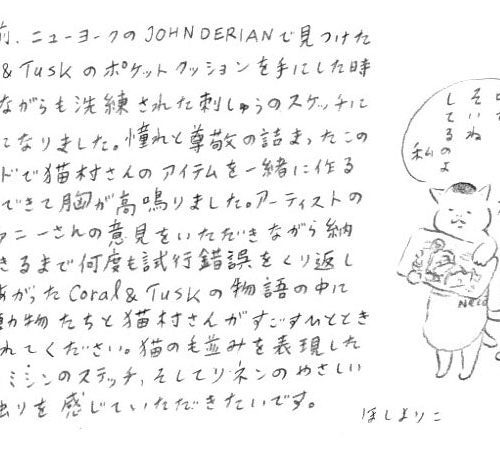 前、ニューヨークのJOHN DERIANで見つけた
& Tuskのポケットクッションを手にした時
ながらも洗練された刺しゅうのスケッチに
になりました。憧れと尊敬の詰まったこの
ドで猫村さんのアイテムを一緒に作る
できて胸が高鳴りました。アーティストの
ァニーさんの意見をいただきながら納
きるまで何度も試行錯誤をくり返し
あがったCoral & Tuskの物語の中に
動物たちと猫村さんがすごすひととき
れてください。猫の毛並みを表現した
ミシンのステッチ、そしてリネンのやさしい
触りを感じていただきたいです。
ほしよりこ
そいね
してるのよ
私